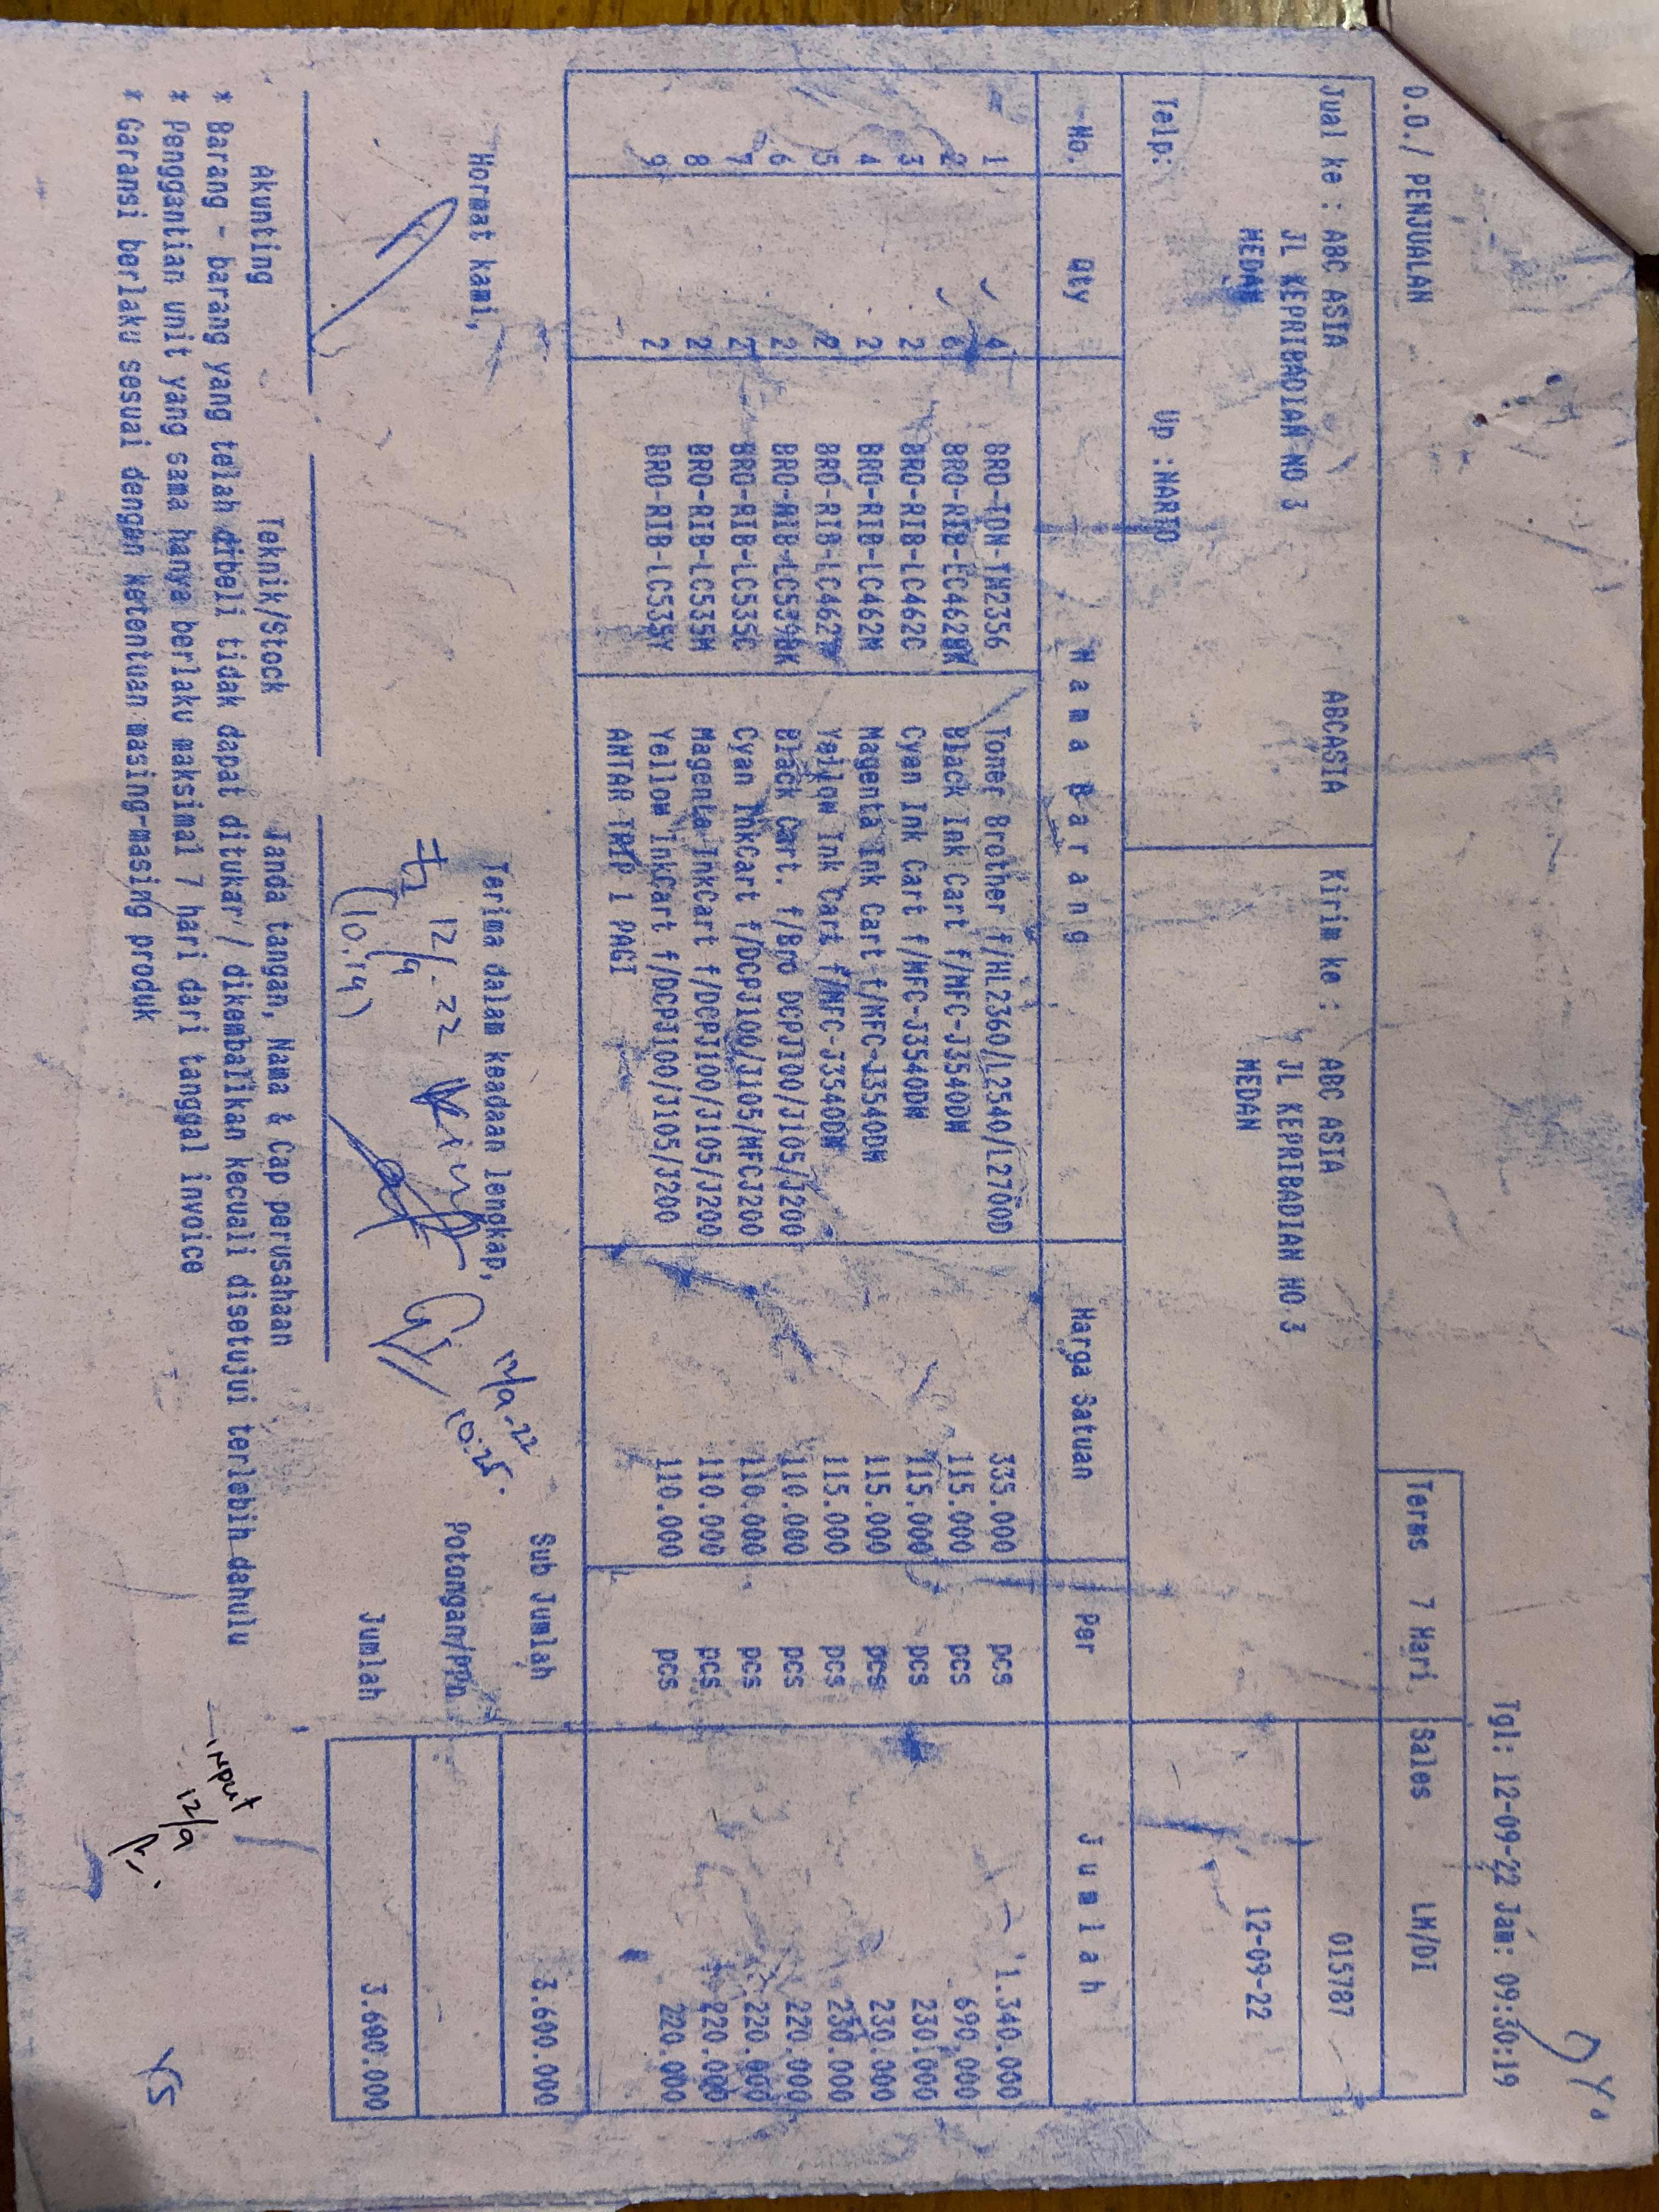 Tgl: 12-09-22 Jam: 09:30:19
D.O./ PENJUALAN Terms 7 Hari Sales LM/DI
Jual ke : ABC ASIA ABCASIA Kirim ke : ABC ASIA 015787
JL KEPRIBADIAN NO 3 JL KEPRIBADIAN NO 3
MEDAN MEDAN 12-09-22
Telp: Up :NARTO
No. Qty Nama Barang Harga Satuan Per Jumlah
1 4 BRO-TON-TN2356 Toner Brother f/HL2360/L2540/L2700D 335.000 pcs 1.340.000
2 6 BRO-RIB-LC462BK Black Ink Cart f/MFC-J3540DW 115.000 pcs 690.000
3 2 BRO-RIB-LC462C Cyan Ink Cart f/MFC-J3540DW 115.000 pcs 230.000
4 2 BRO-RIB-LC462M Magenta Ink Cart f/MFC-J3540DW 115.000 pcs 230.000
5 2 BRO-RIB-LC462Y Yellow Ink Cart f/MFC-J3540DW 115.000 pcs 230.000
6 2 BRO-RIB-LC539BK Black Cart. f/Bro DCPJ100/J105/J200 110.000 pcs 220.000
7 2 BRO-RIB-LC535C Cyan InkCart f/DCPJ100/J105/MFCJ200 110.000 pcs 220.000
8 2 BRO-RIB-LC535M Magenta InkCart f/DCPJ100/J105/J200 110.000 pcs 220.000
9 2 BRO-RIB-LC535Y Yellow InkCart f/DCPJ100/J105/J200 110.000 pcs 220.000
ANTAR TRIP 1 PAGI
Hormat kami, Terima dalam keadaan lengkap, Sub Jumlah 3.600.000
12/9-22
10:25
12/9 22
(10:14)
Potongan/PPn -
Jumlah 3.600.000
Akunting Teknik/Stock Tanda tangan, Nama & Cap perusahaan
* Barang - barang yang telah dibeli tidak dapat ditukar / dikembalikan kecuali disetujui terlebih dahulu
* Penggantian unit yang sama hanya berlaku maksimal 7 hari dari tanggal invoice
* Garansi berlaku sesuai dengan ketentuan masing-masing produk
- input
12/9